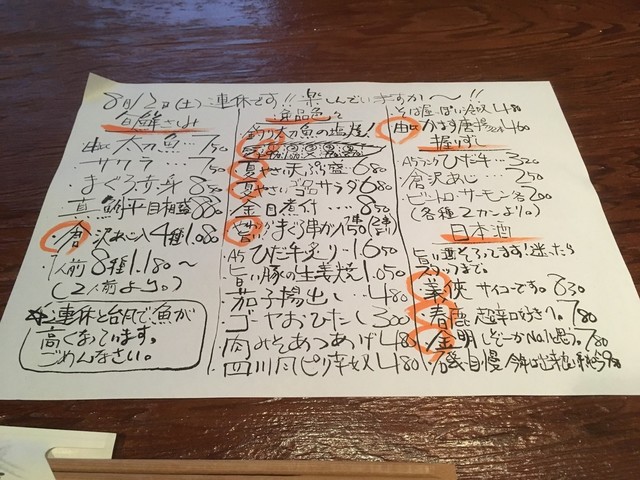 8月12日(土)連休です!!楽しんでいますか〜!!
旬鮮さしみ
太刀魚… 750
サワラ … 750
まぐろ赤身 850
真鯵平目相盛 880
倉沢あじ入4種1.080
1人前8種1.180〜
(2人前より。)
連休と台風で魚が
高くなっています。
ごめんなさい。
逸品色々
釣り太刀魚の塩焼!
夏やさい天ぷら盛 680
夏やさいゴロ品サラダ680
金目煮付 …850
旨いまぐろ串かつ 1本150
A5ひだ牛炙り…1650
旨い豚の生姜焼1.050
茄子揚出し …480
ゴーヤおひたし 300
肉みそあつあげ480
四川風ピリ辛奴480
そば屋っぽい冷奴480
由比かます唐揚 460
握りずし
A5ランクひだ牛…320
倉沢あじ … 250
ビントロ・サーモン各200
(各種2カンより。)
日本酒
旨い酒そろってます!迷ったら
スタッフまで。
義侠 サイコーです。630
春鹿 超辛口好き?。780
金明 しぞーかNo.1(と思う)。780
磯自慢